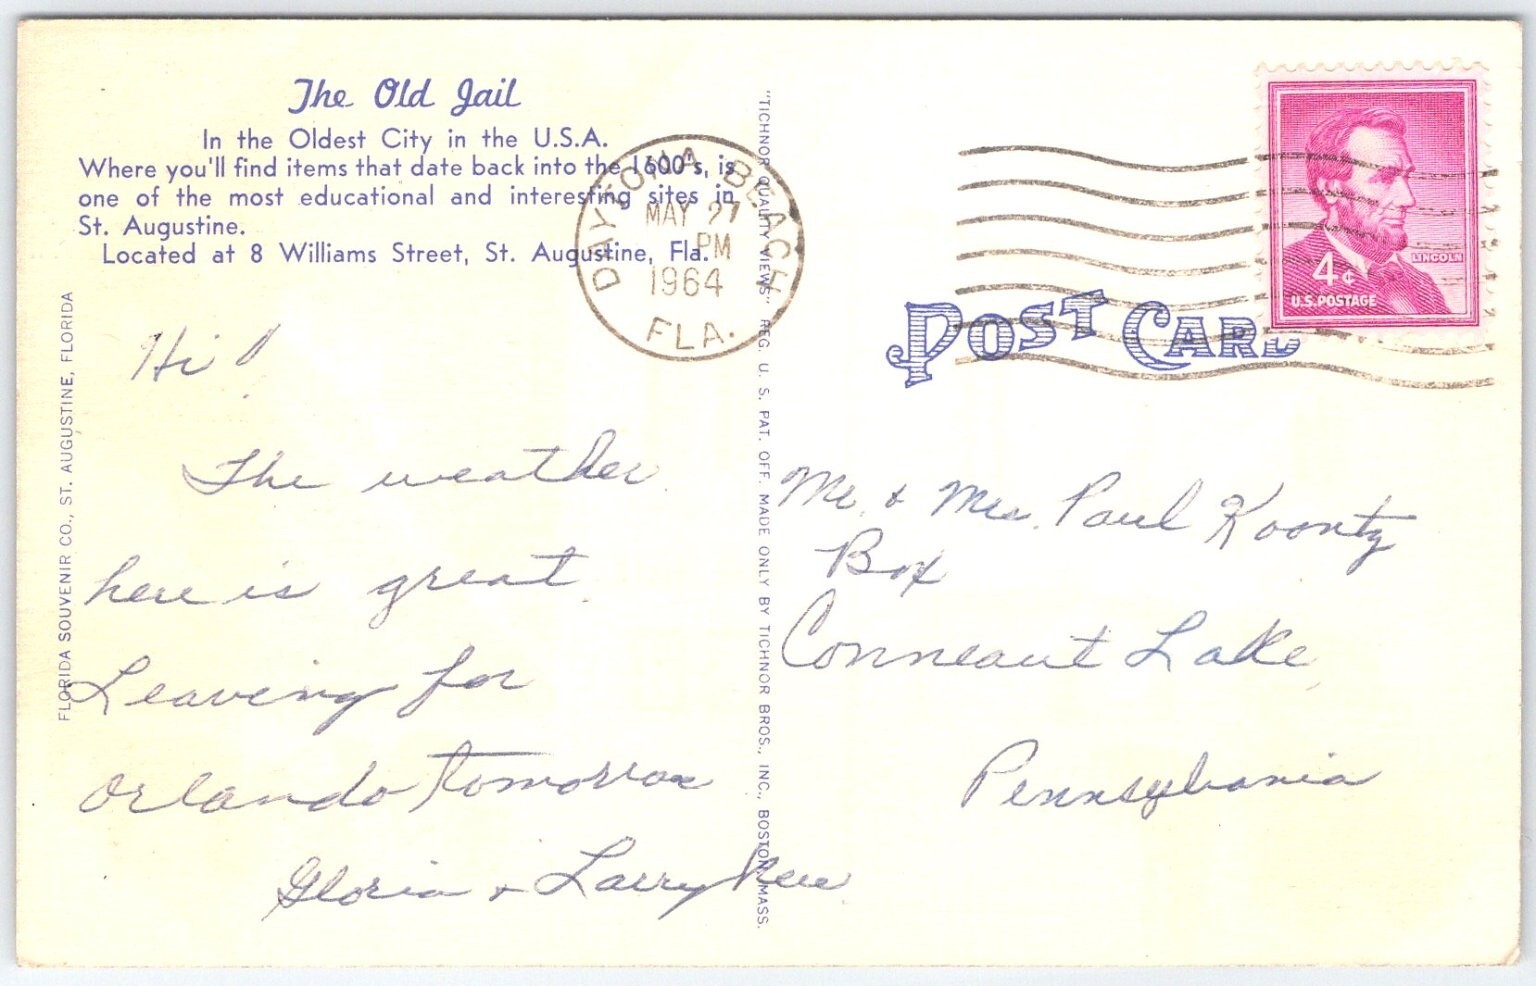 The Old Jail
In the Oldest City in the U.S.A.
Where you'll find items that date back into the 1600's, is
one of the most educational and interesting sites in
St. Augustine.
Located at 8 Williams Street, St. Augustine, Fla.
FLORIDA SOUVENIR CO., ST. AUGUSTINE, FLORIDA
Hi!
The weather
here is great.
Leaving for
Orlando tomorrow
Gloria & Larry
"TICHNOR QUALITY VIEWS," REG. U. S. PAT. OFF. MADE ONLY BY TICHNOR BROS., INC., BOSTON, MASS.
DAYTONA BEACH
MAY 27
PM
1964
FLA.
LINCOLN
4¢
U.S. POSTAGE
POST CARD
Mr. & Mrs. Paul Koontz
Box
Conneaut Lake,
Pennsylvania